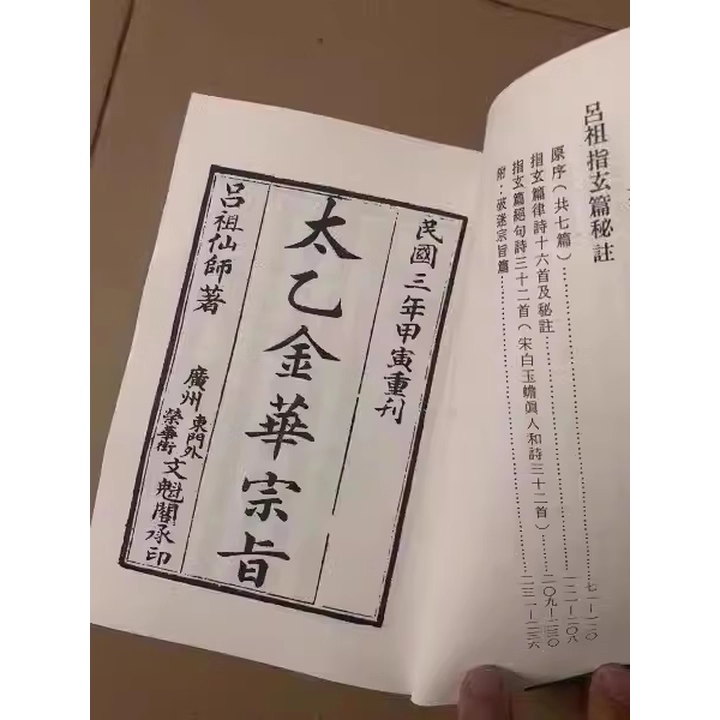 呂祖指玄篇秘註
原序(共七篇)……七一—一二〇
指玄篇律詩十六首及秘註……一二一—二〇八
指玄篇絕句詩三十二首(宋白玉蟾眞人和詩三十二首)……二〇九—二三〇
附:破迷宗旨篇……二三一—二三六
民國三年甲寅重刊
太乙金華宗旨
呂祖仙師著
廣州東門外榮華街文魁閣承印